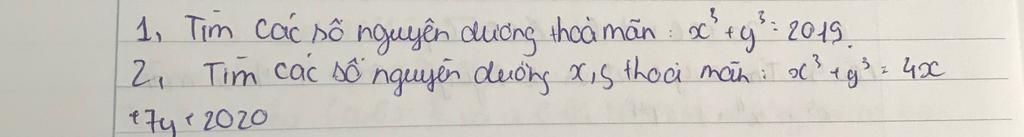 1, Tìm các số nguyên dương thoả mãn: x³ + y³ = 2019.
2, Tìm các số nguyên dương x, y thoả mãn: x³ + y³ = 4x
+ 7y + 2020